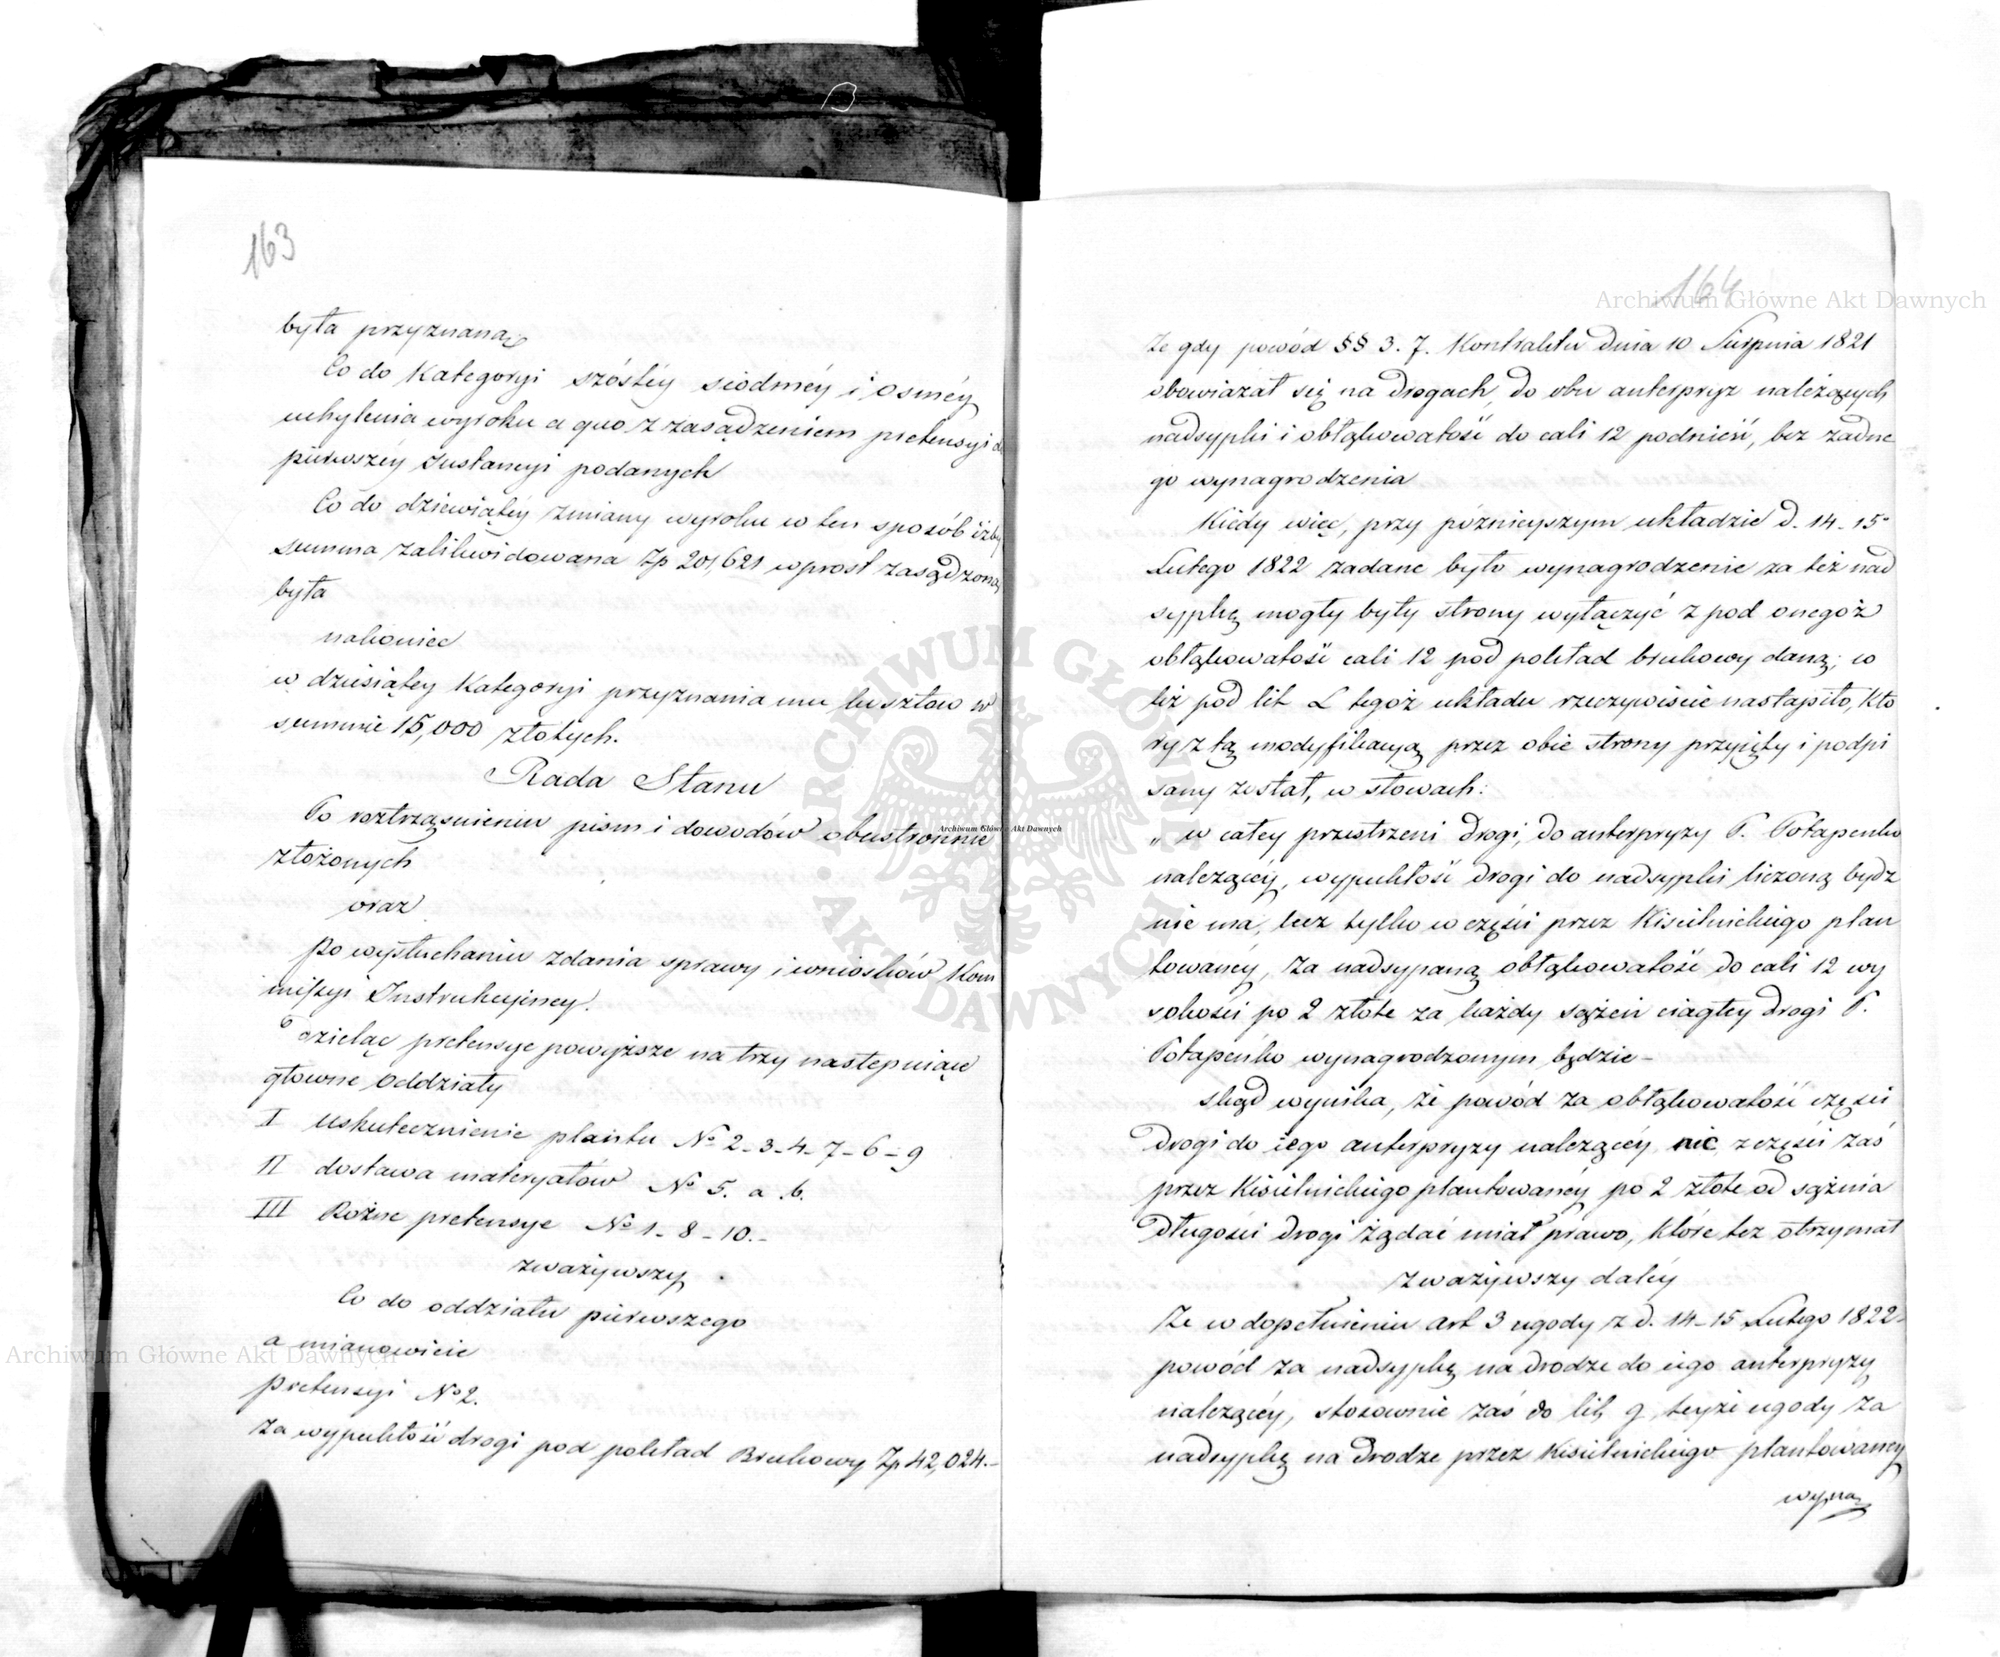 163
była przyznaną
Co do Kategoryi szóstéy siódméy i osméy
uchylenia wyroku a quo z zasądzeniem pretensyi w
piérwszéy Instancyi podanych
Co do dziewiątéy zmiany wyroku w ten sposób iżby
summa zalikwidowana Zp 201,621 wprost zasądzoną
była
nakoniec
w dziesiątéy Kategoryi przyznania mu kosztow w
summie 15,000 złotych.
Rada Stanu
Po roztrząsnieniu pism i dowodów obustronnie
złożonych
oraz
po wysłuchaniu zdania sprawy i wniosków Kom
missyi Instrukcyjney.
dzieląc pretensye powyższe na trzy następuiące
głowne oddziały
I uskutecznienie plantu No 2-3-4-7-6-9
II dostawa materyałów No 5. a. b.
III Rożne pretensye No 1-8-10.-
zważywszy
Co do oddziału piérwszego
a mianowicie
pretensyi No 2.
Za wypukłość drogi pod pokład Brukowy Zp 42,024.-
164
Że gdy powód §§ 3. 7. Kontraktu dnia 10 Sierpnia 1821
obowiązał się na drogach, do obu anterpryz należących
nadsypki i obłąkowatość do cali 12 podnieść, bez żadne
go wynagrodzenia
Kiedy więc, przy póznieyszym układzie d. 14-15
Lutego 1822 żądane było wynagrodzenie za też nad
sypkę mogły były strony wyłączyć z pod onegoż
obłąkowatość cali 12 pod pokład brukowy daną; co
też pod lit L tegoż układu rzeczywiście nastąpiło, Kto
ry z tą modyfikacyą przez obie strony przyięty i podpi
sany został, w słowach:
„w całey przestrzeni drogi, do anterpryzy P. Potapenko
należącéy, wypukłość drogi do nadsypki liczoną bydz
nie ma, lecz tylko w części przez Kisielnickiego plan
towanéy, za nadsypaną obłąkowatość do cali 12 wy
sokości po 2 złote za każdy sążeń ciągłey drogi P.
Potapenko wynagrodzonym będzie-
skąd wynika, że powód za obłąkowatość części
drogi do iego anterpryzy należącéy nic, z części zaś
przez Kisielnickiego plantowanéy po 2 złote od sążnia
długości drogi żądać miał prawo, które też otrzymał
zważywszy daléy
Że w dopełnieniu art 3 ugody z d. 14-15 Lutego 1822
powód za nadsypkę na drodze do iego anterpryzy
należącéy, stosownie zaś do lit, g, teyże ugody za
nadsypkę na drodze przez Kisielnickiego plantowanéy
wyna
Archiwum Główne Akt Dawnych
Archiwum Główne Akt Dawnych
Archiwum Główne Akt Dawnych
ARCHIWUM GŁÓWNE AKT DAWNYCH